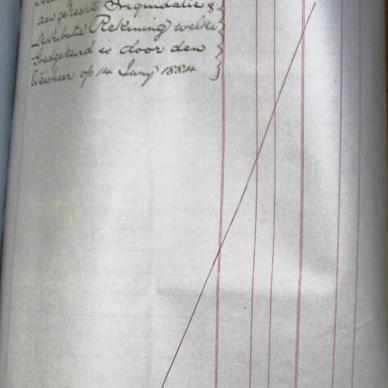 aangehechte Liquidatie &
Distributie Rekening welke
Goedgekeurd is door den
Meester op 14 Juny 1884